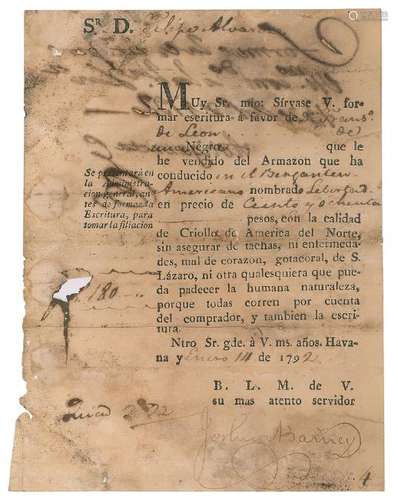 Sr. D. Felipe Alvar
MUy Sr. mio: Sírvase V. for-
mar escritura à favor de
de Leon del
una Negra que le
he vendido del Armazon que ha
conducido en el Bergantin
Americano nombrado Libertad
en precio de Ciento y ochenta
pesos, con la calidad
de Criolla de America del Norte,
sin asegurar de tachas, ni enfermeda-
des, mal de corazon, gotacoral, de S.
Lázaro, ni otra qualesquiera que pue-
da padecer la humana naturaleza,
porque todas corren por cuenta
del comprador, y tambien la escri-
tura.
Ntro Sr. g.de. à V. ms. años. Hava-
na y Enero 14 de 1792
B. L. M. de V.
su mas atento servidor
Joshua Barney
Se presentará en
la Administra-
cion general, an-
tes de formar la
Escritura, para
tomar la filiacion
180
4